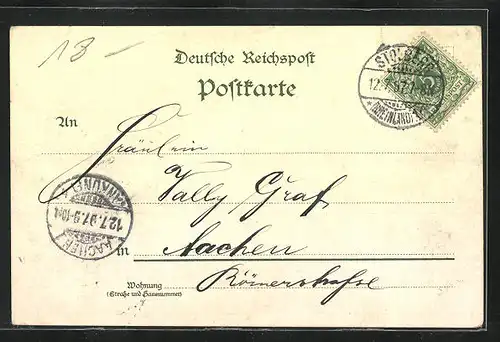 13 -
Deutsche Reichspost
Postkarte
STOLBERG
12.7.97.7-
* (RHEINLAND) *
An
Fräulein
Wally Graf
in Aachen
Wohnung Römerstrasse
(Strasse und Hausnummer)
ANKUNFT
12.7.97.9-10N.
AACHEN